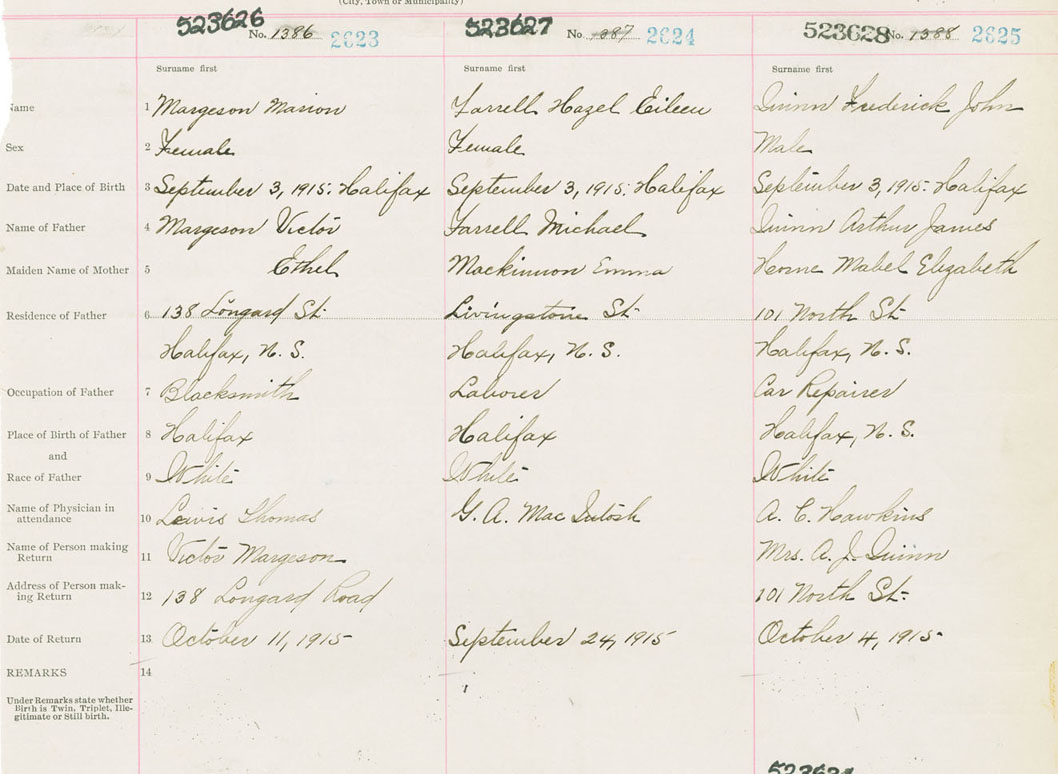 (City, Town or Municipality)
523626 No. 1386 2623 523627 No. 1387 2624 523628 No. 1388 2625
Surname first Surname first Surname first
Name 1 Margeson Marion Farrell Hazel Eileen Quinn Frederick John
Sex 2 Female Female Male
Date and Place of Birth 3 September 3, 1915. Halifax September 3, 1915. Halifax September 3, 1915. Halifax
Name of Father 4 Margeson Victor Farrell Michael Quinn Arthur James
Maiden Name of Mother 5 Ethel Mackinnon Emma Horne Mabel Elizabeth
Residence of Father 6 138 Longard St. Livingstone St. 101 North St.
Halifax, N. S. Halifax, N. S. Halifax, N. S.
Occupation of Father 7 Blacksmith Laborer Car Repairer
Place of Birth of Father 8 Halifax Halifax Halifax, N. S.
and
Race of Father 9 White White White
Name of Physician in
attendance 10 Lewis Thomas G. A. MacIntosh A. C. Hawkins
Name of Person making
Return 11 Victor Margeson Mrs. A. J. Quinn
Address of Person mak-
ing Return 12 138 Longard Road 101 North St.
Date of Return 13 October 11, 1915 September 24, 1915 October 4, 1915
REMARKS 14
Under Remarks state whether
Birth is Twin, Triplet, Ille-
gitimate or Still birth.